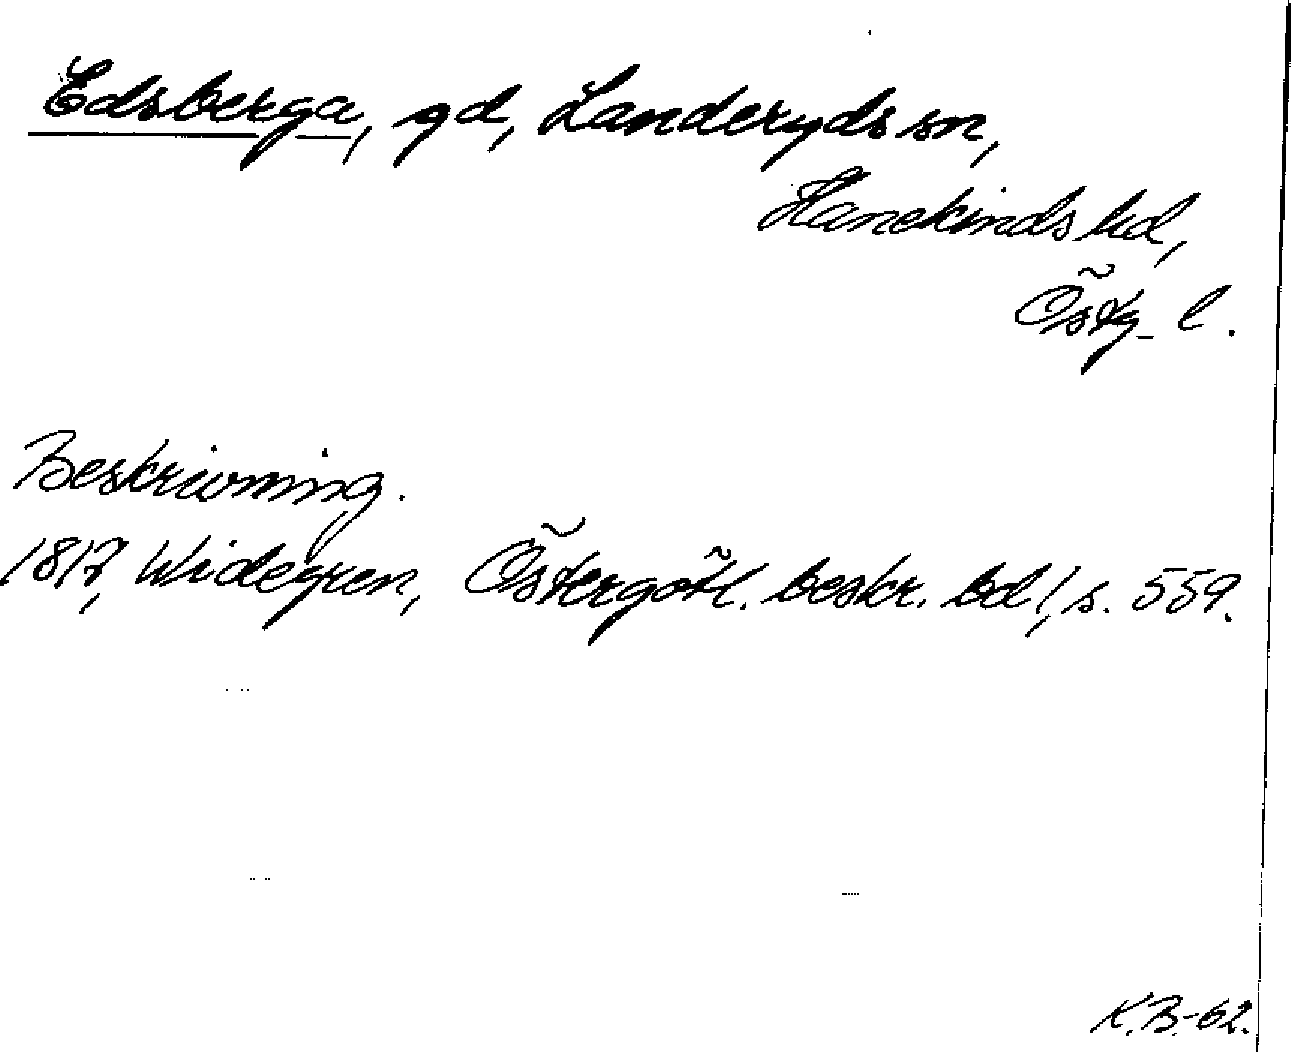 Edsberga, gd, Landeryds sn,
Hanekinds hd,
Östg. l.
Beskrivning.
1817, Widegren, Östergötl. beskr. bd 1, s. 559.
K.B.-62.